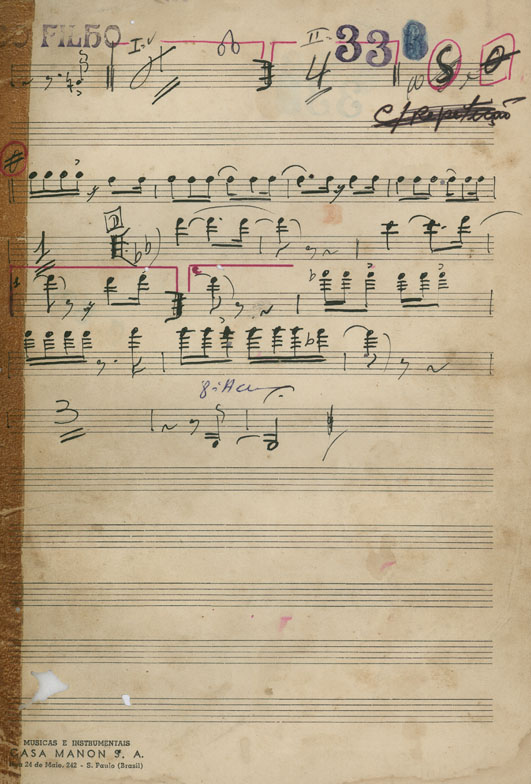 FILHO I-V II- 33
4
C/ Repetição
D
1
1 2
8ª Acu
3
MUSICAS E INSTRUMENTAIS
CASA MANON S. A.
24 de Maio, 242 - S. Paulo (Brasil)